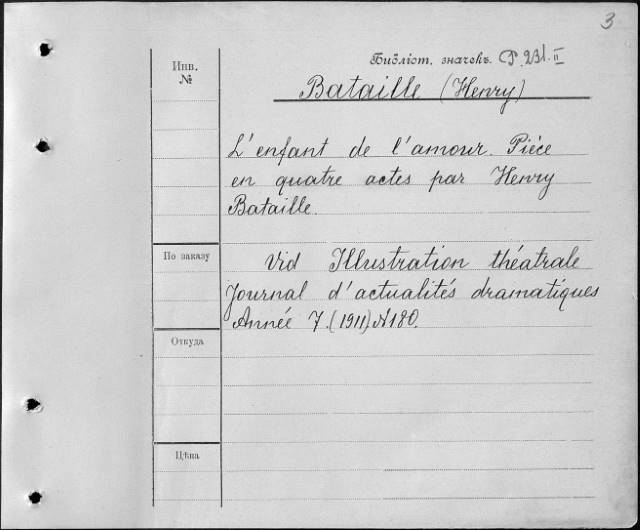 3
Инв.
№
Библіот. значекъ. P. 231. II
Bataille (Henry)
L'enfant de l'amour. Piéce
en quatre actes par Henry
Bataille.
По заказу
Vid Illustration théatrale
Journal d'actualités dramatiques
Année 7. (1911) N 180.
Откуда
Цѣна